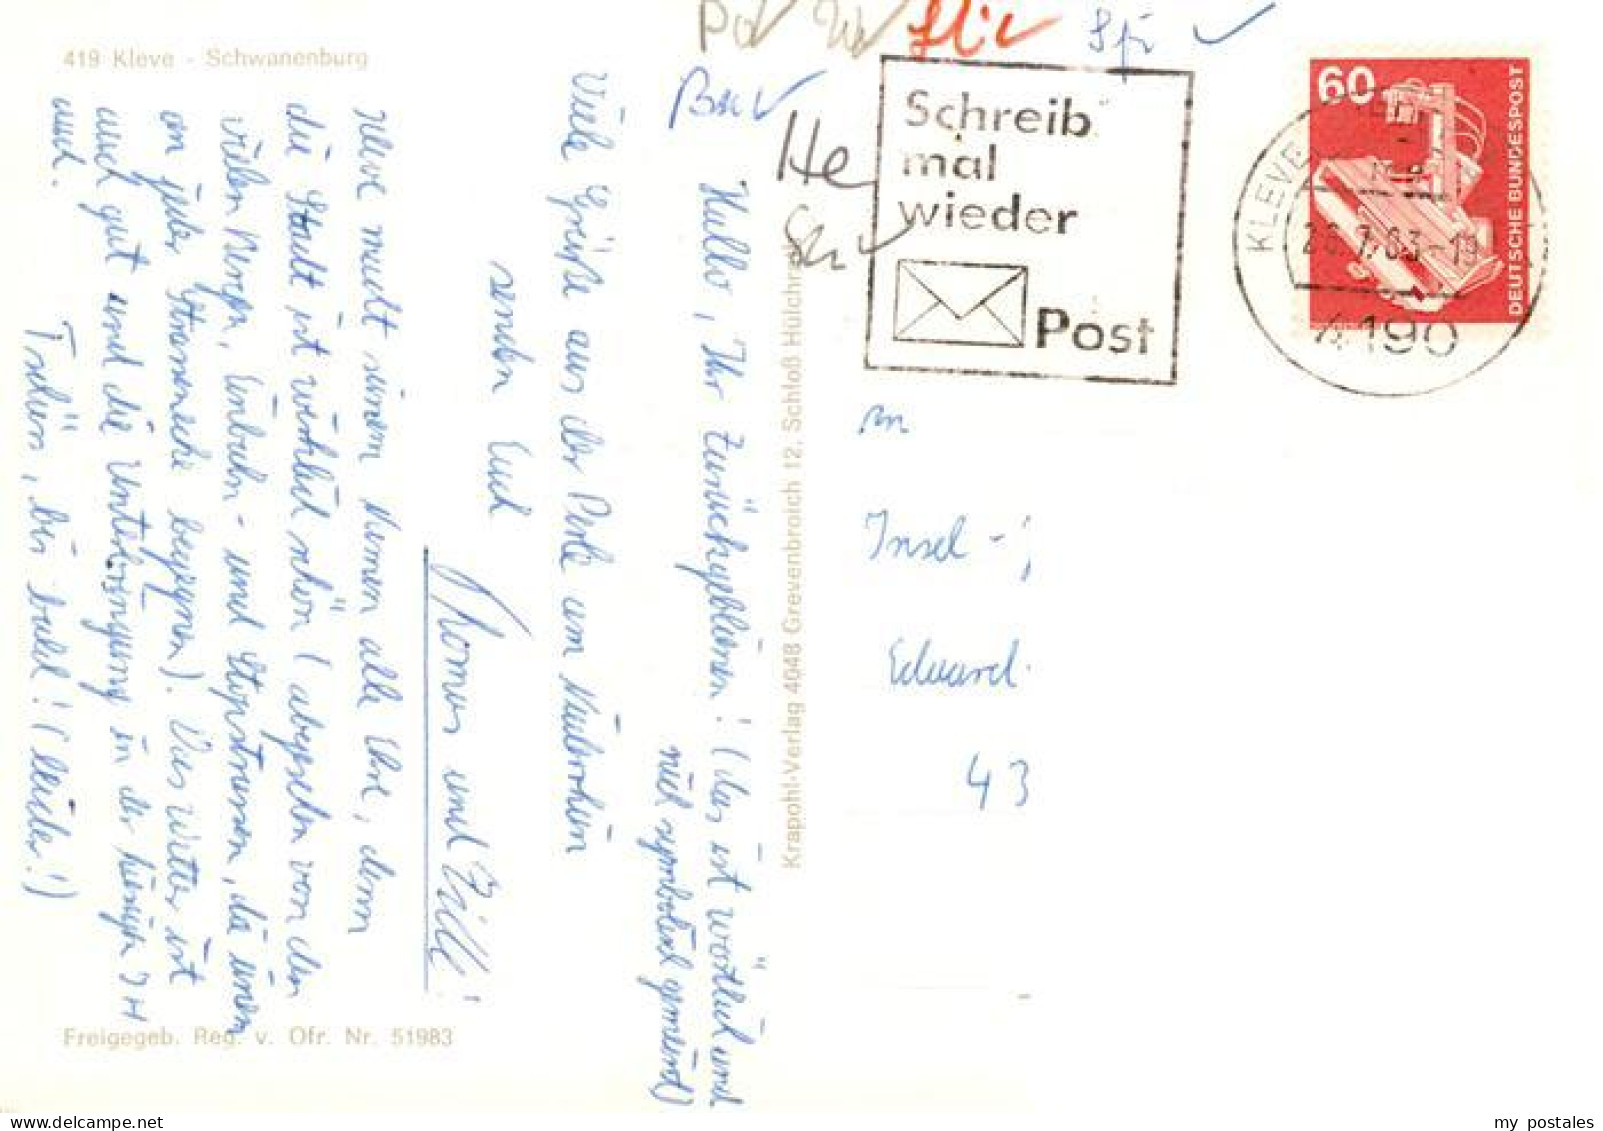 419 Kleve - Schwanenburg
Hallo, Ihr Zurückgebliebenen! (das ist wörtlich und
nicht symbolisch gemeint)
Viele Grüße aus der Perle am Niederrhein
senden Euch
Thomas und Zilli!
Kleve macht seinem Namen alle Ehre, denn
die Stadt ist wirklich schön (abgesehen von den
vielen Bergen, Einbahn- und Stopstrassen, die einem
an jeder Strassenecke begegnen). Das Wetter ist
auch gut und die Unterbringung in der hiesigen JH
auch.
Tschüss, bis bald! (leider!)
Freigegeb. Reg. v. Ofr. Nr. 51983
Krapohl-Verlag 4048 Grevenbroich 12, Schloß Hülchrath
He
Schreib
mal
wieder
Post
60
DEUTSCHE BUNDESPOST
KLEVE
4190
An
Insel-
Eduard
43
my postales